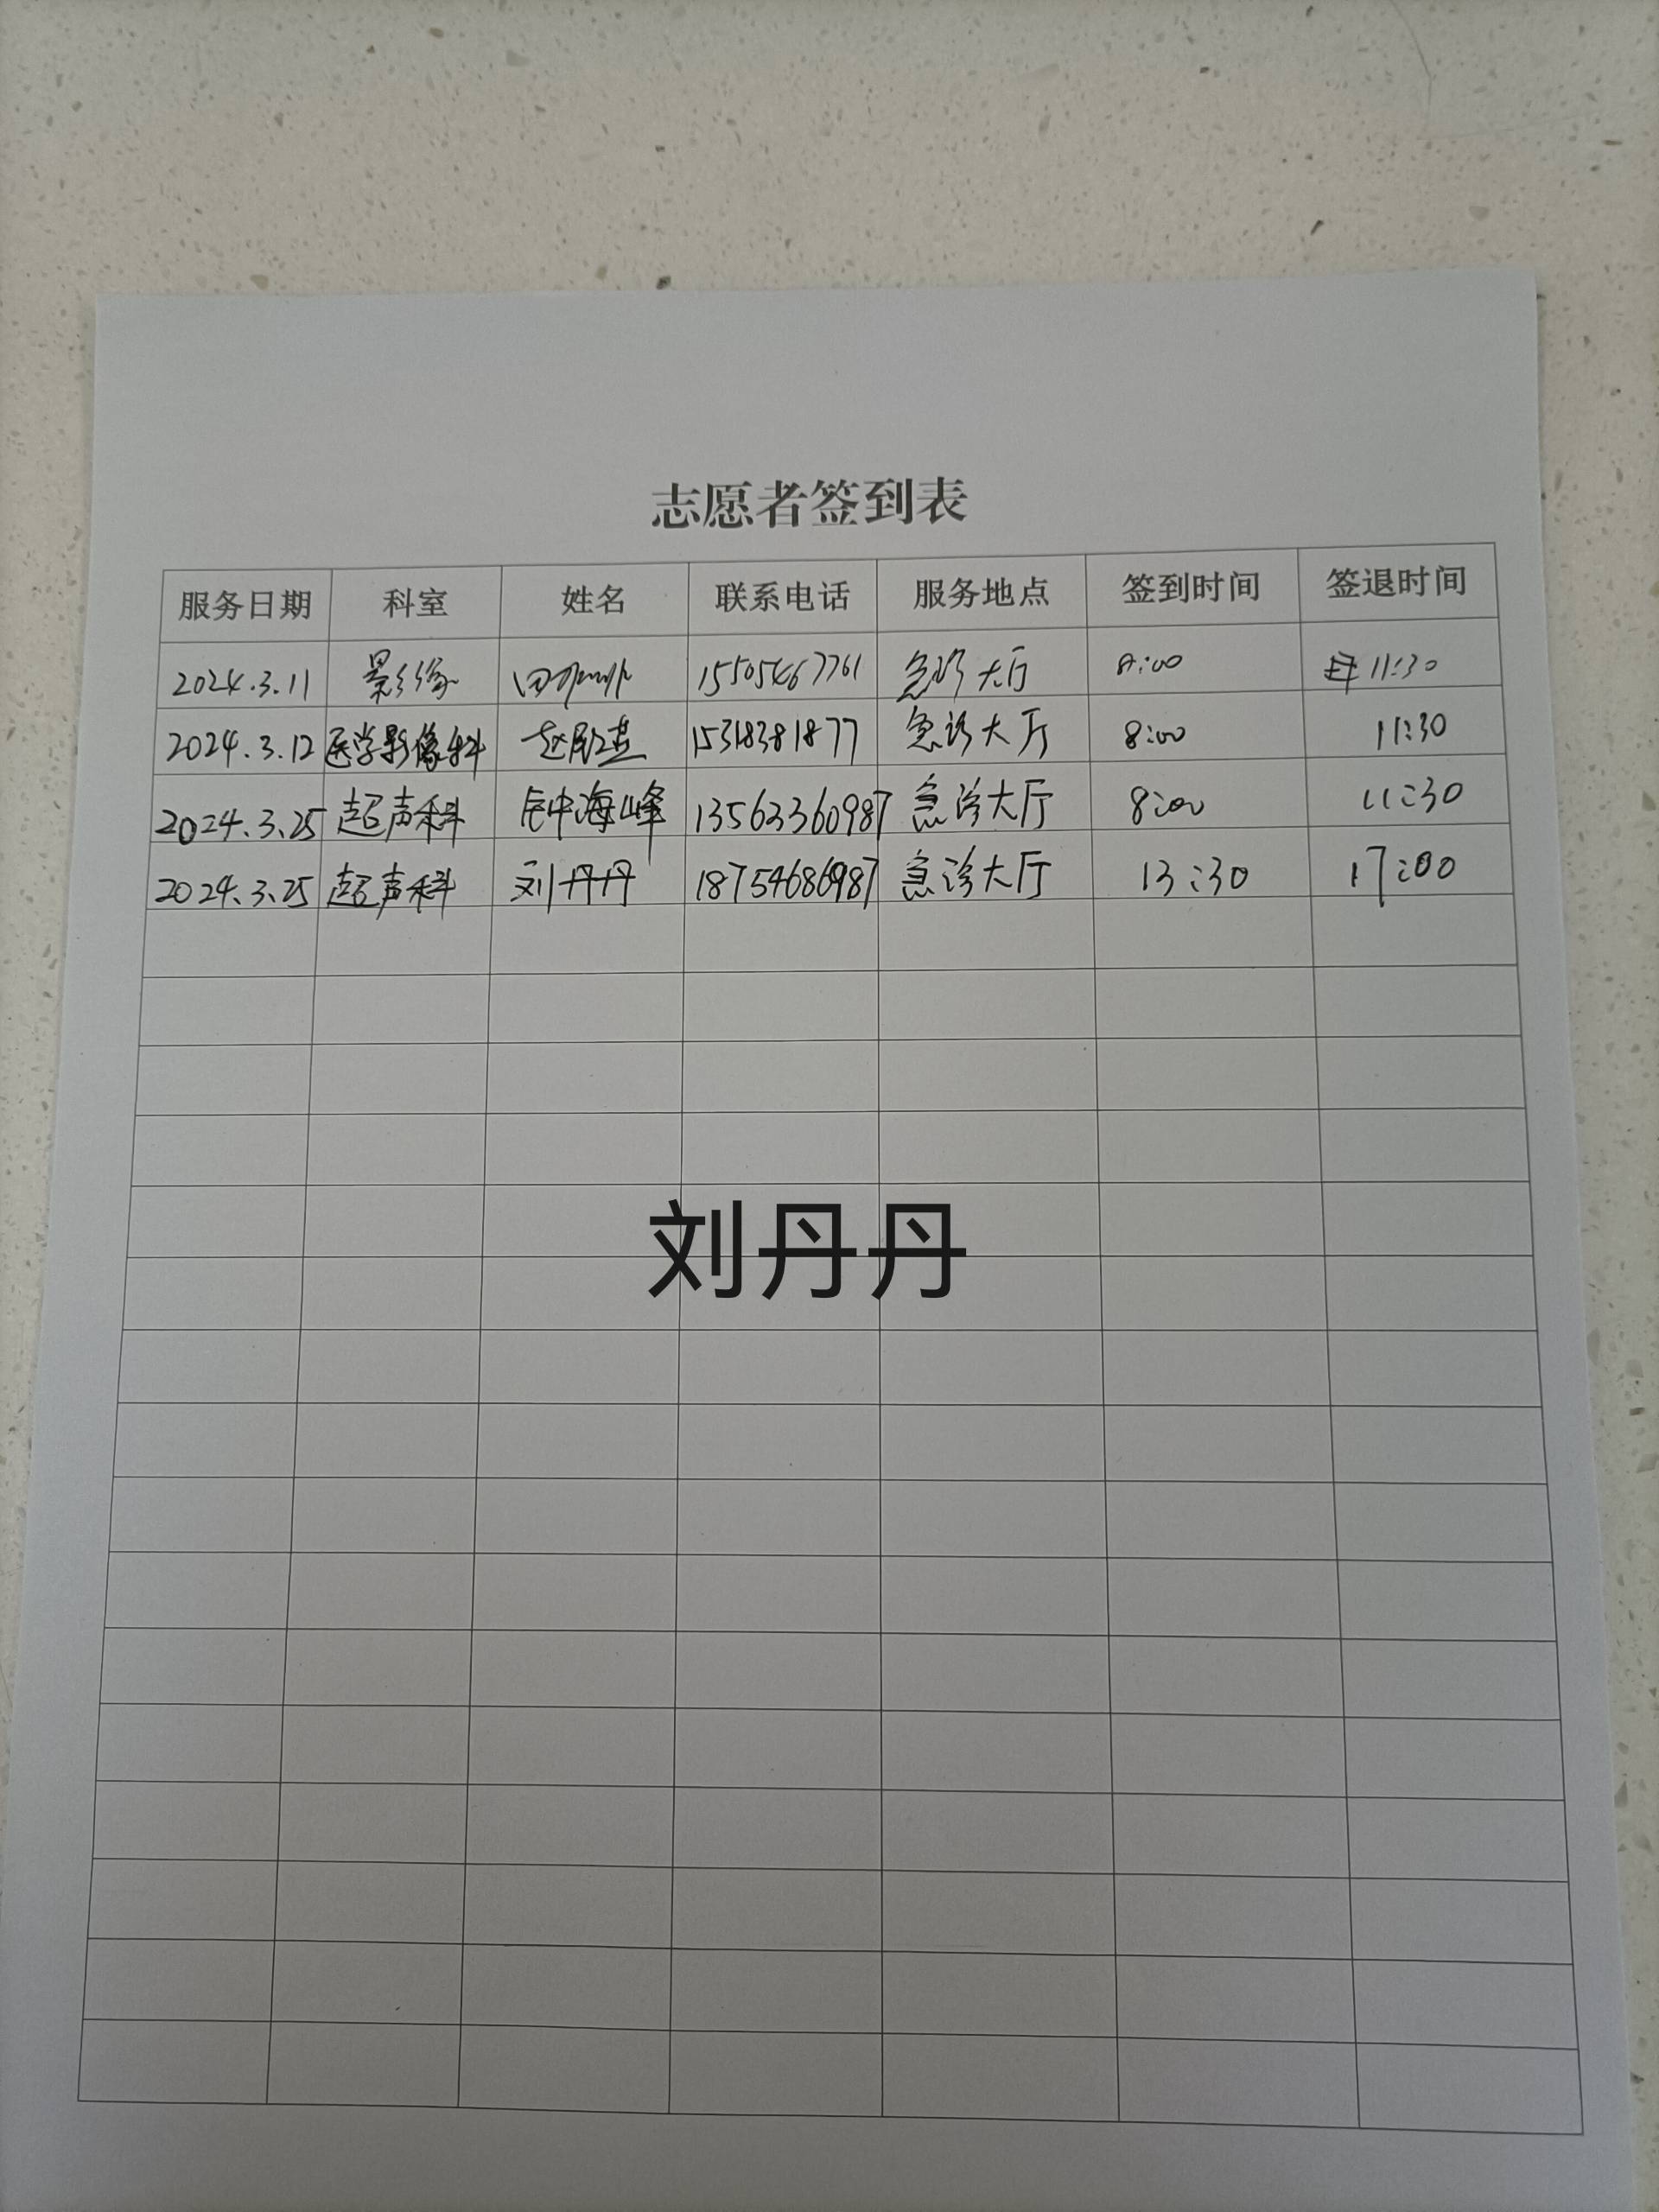 志愿者签到表
服务日期 科室 姓名 联系电话 服务地点 签到时间 签退时间
2024.3.11 影像 田 15505467761 急诊大厅 8:00 11:30
2024.3.12 医学影像科 赵 15318381877 急诊大厅 8:00 11:30
2024.3.25 超声科 钟海峰 13563360987 急诊大厅 8:00 11:30
2024.3.25 超声科 刘丹丹 18754686987 急诊大厅 13:30 17:00
刘丹丹